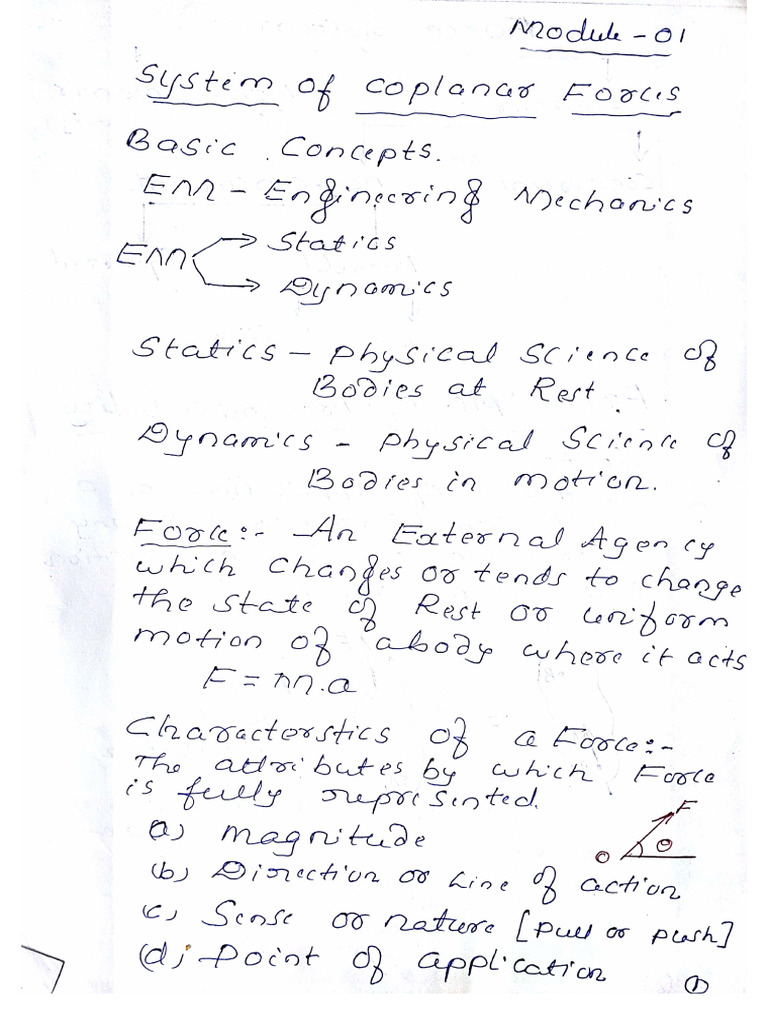 Module-01
System of Coplanar Forces
Basic Concepts.
EM - Engineering Mechanics
EM → Statics
→ Dynamics
Statics - Physical Science of
Bodies at Rest
Dynamics - Physical Science of
Bodies in motion.
Force:- An External Agency
which changes or tends to change
the state of Rest or uniform
motion of a body where it acts
F = m.a
Characterstics of a Force:-
The attributes by which Force
is fully represented.
F
a) Magnitude
O θ
(b) Direction or Line of action
(c) Sense or nature [Pull or Push]
(d) Point of application
1